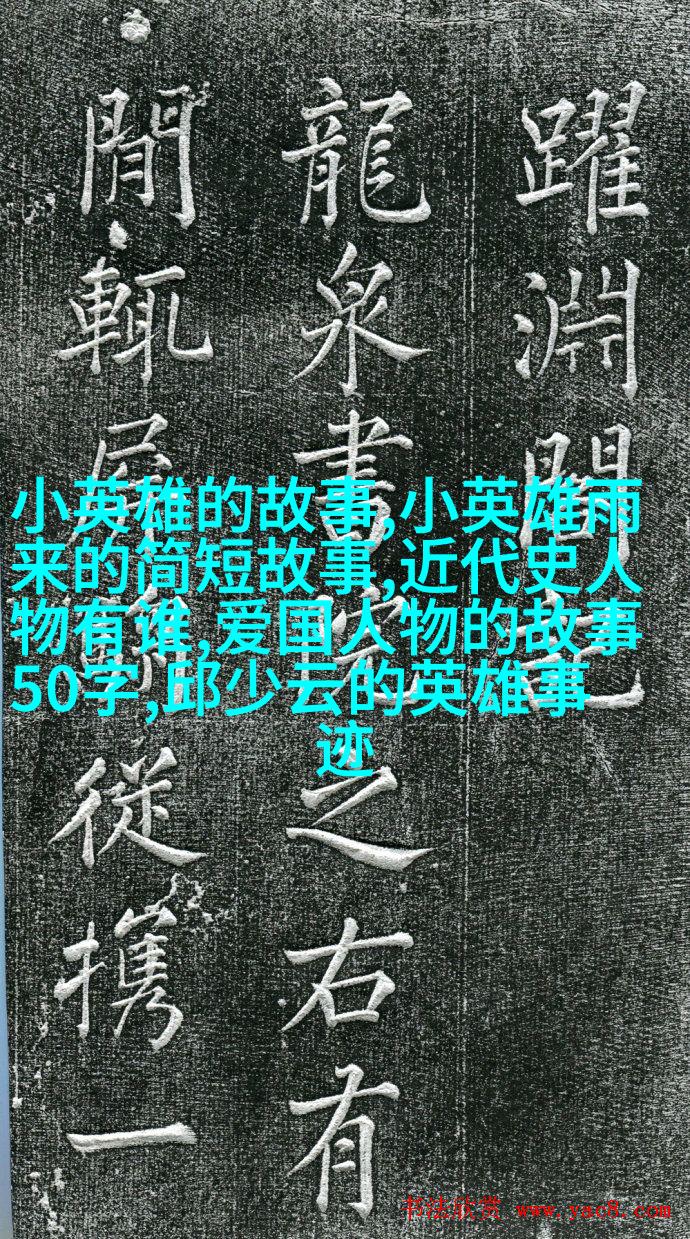 躍淵
龍泉書院之右有
閒輒屏從攜一
小英雄的故事,小英雄雨
来的简短故事,近代史人
物有谁,爱国人物的故事
50字,邱少云的英雄事
迹
书法欣赏 www.yac8.com